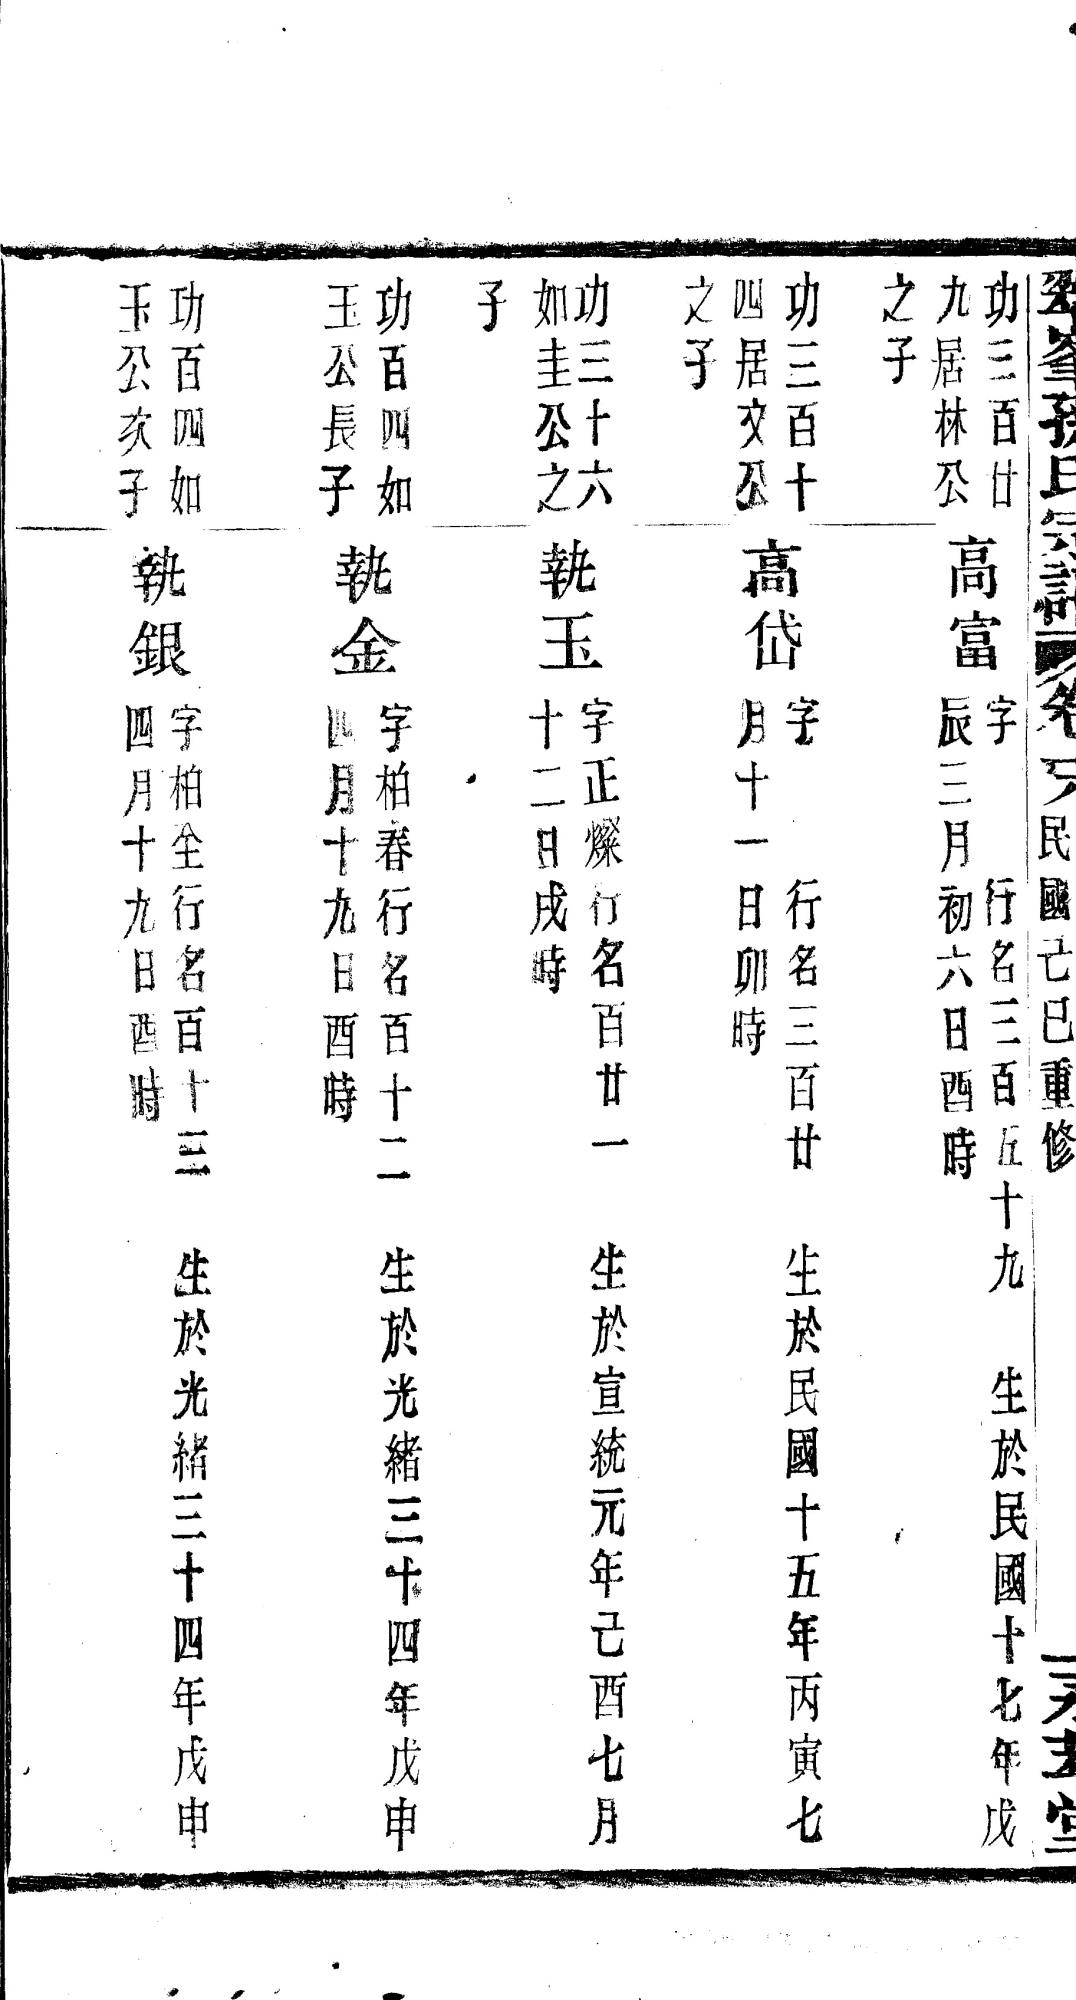 峯孫氏宗譜
卷
民國己巳重修
堂
功三百廿
九居林公
之子
高富
字 行名三百五十九 生於民國十七年戊
辰三月初六日酉時
功三百十
四居文公
之子
高岱
字 行名三百廿 生於民國十五年丙寅七
月十一日卯時
功三十六
如圭公之
子
執玉
字正燦行名百廿一 生於宣統元年己酉七月
十二日戌時
功百四如
玉公長子
執金
字柏春行名百十二 生於光緒三十四年戊申
四月十九日酉時
功百四如
玉公次子
執銀
字柏全行名百十三 生於光緒三十四年戊申
四月十九日酉時